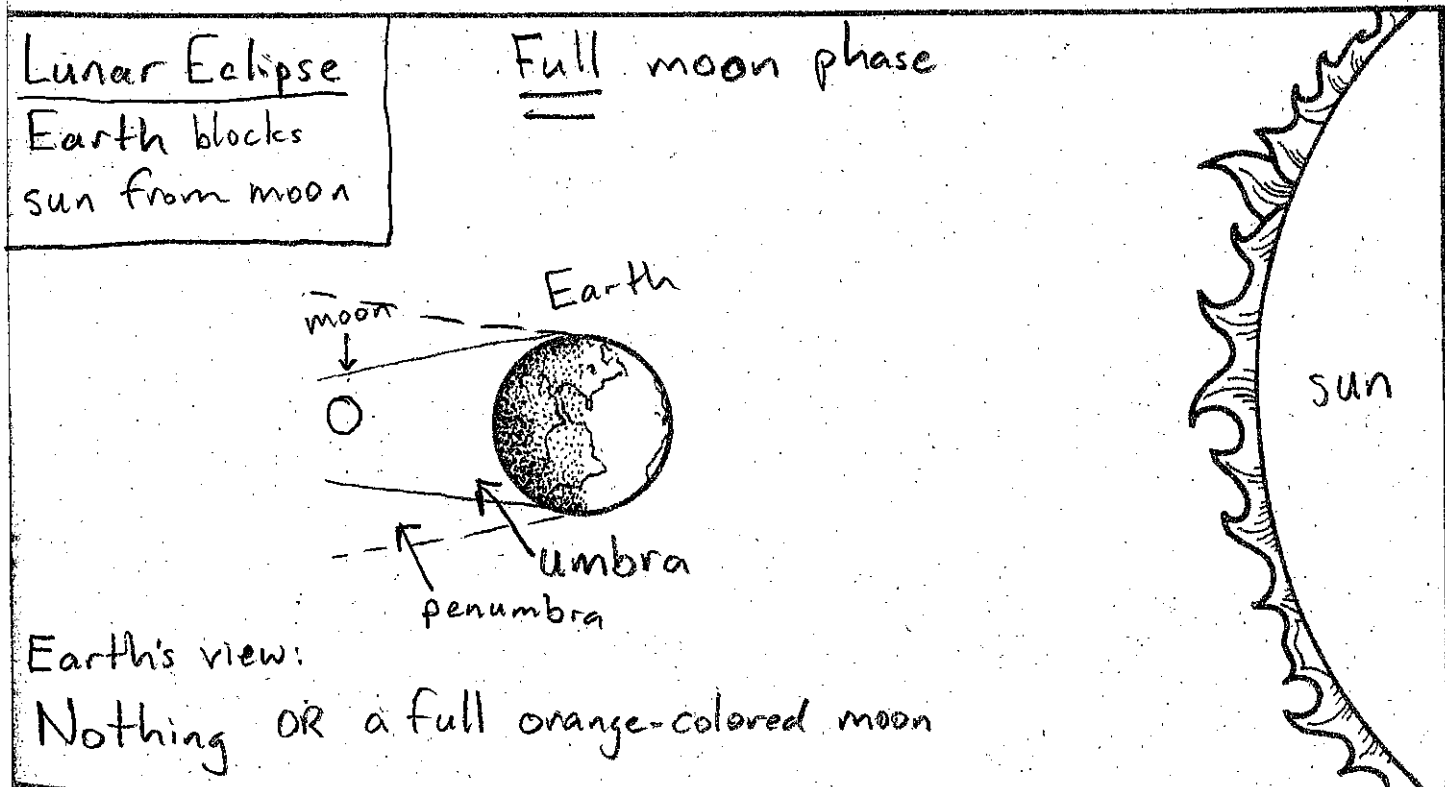 Lunar Eclipse
Earth blocks
sun from moon
Full moon phase
Earth
moon
sun
umbra
penumbra
Earth's view:
Nothing OR a full orange-colored moon